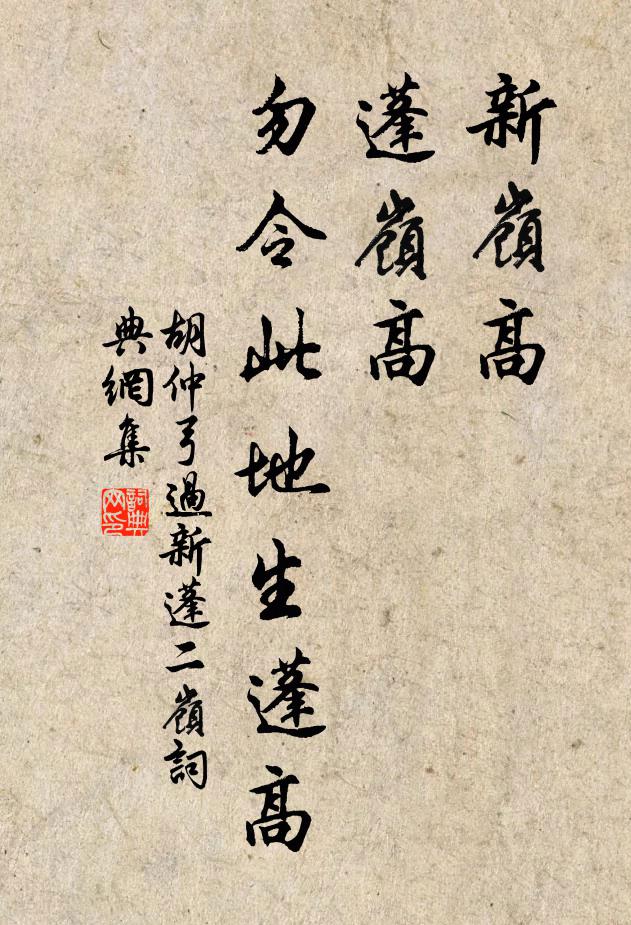 新嶺高
蓬嶺高
勿令此地生蓬高
胡仲弓過新蓬二嶺詞
典網集
詞典網印